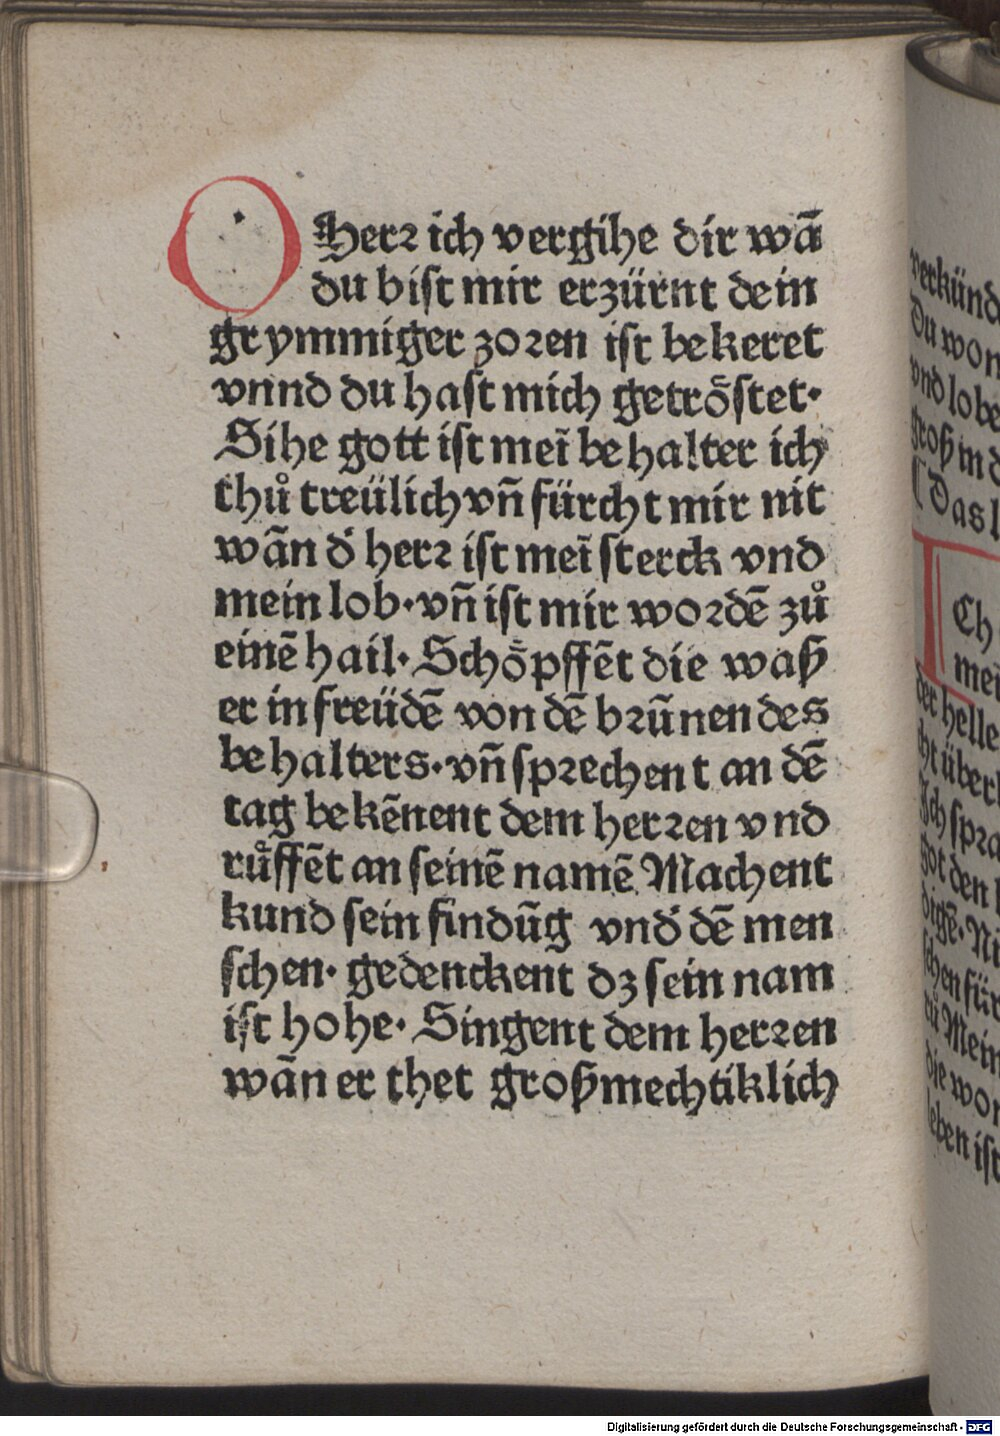 O Herꝛ ich vergihe dir wã
du bist mir erzürnt dein
grymmiger zoꝛen ist bekeret
vnnd du hast mich getröstet·
Sihe gott ist meĩ behalter ich
thuͦ treülich vñ fürcht mir nit
wãn d' herꝛ ist meĩ sterck vnd
mein lob·vñ ist mir woꝛdẽ zuͦ
einẽ hail· Schöpffẽt die waß
er in freüdẽ von dẽ bꝛũnen des
behalters·vñ spꝛechent an dẽ
tag bekẽnent dem herꝛen vnd
ruͦffẽt an seinẽ namẽ Machent
kund sein findũg vnd' dẽ men
schen· gedenckent dz sein nam
ist hohe· Singent dem herꝛen
wãn er thet großmechtiklich
verkünd
Du won
vnd lobe
groß in d
Das l
ICh
mei
der helle
cht über
Ich spra
got den
digẽ· Ni
schen für
Mein
die wor
leben ist
Digitalisierung gefördert durch die Deutsche Forschungsgemeinschaft - DFG